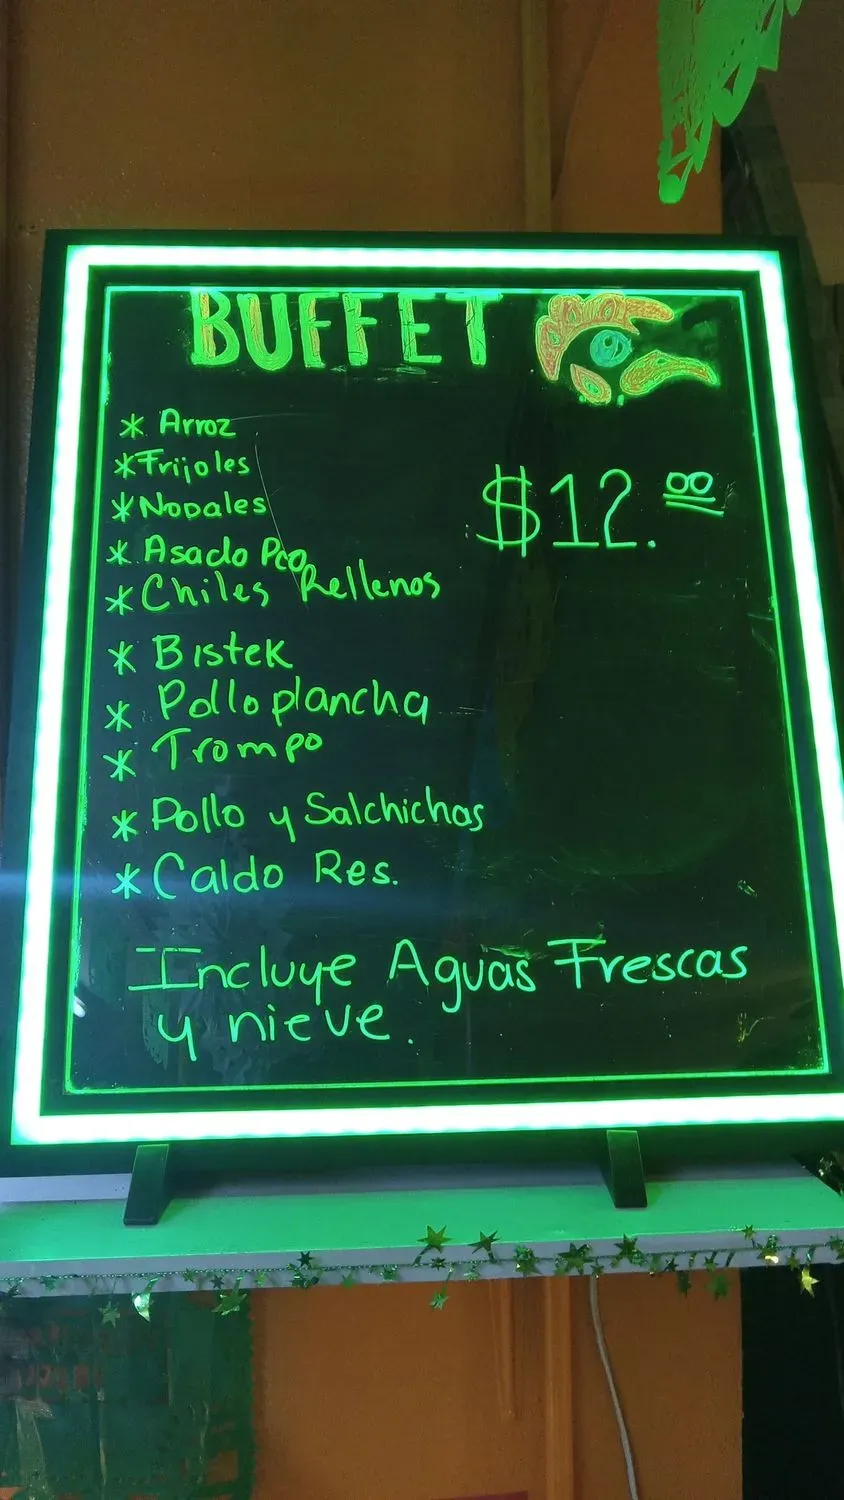 BUFFET
* Arroz
* Frijoles
* Nopales
* Asado Pco
* Chiles Rellenos
$12.00
* Bistek
* Pollo plancha
* Trompo
* Pollo y Salchichas
* Caldo Res.
Incluye Aguas Frescas
y nieve.